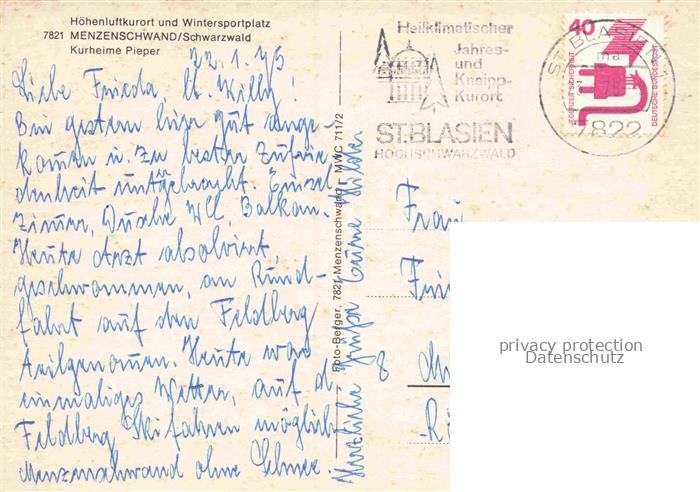 Höhenluftkurort und Wintersportplatz
7821 MENZENSCHWAND/Schwarzwald
Kurheime Pieper
22.1.75
Liebe Frieda u. Willy!
Bin gestern hier gut ange-
komen u. zu bester Zufrie
denheit untergebracht. Einzel
zimer, Dusche WC, Balkon.
Heute Arzt absolviert,
geschwommen, an Rund-
fahrt auf den Feldberg
teilgenomen. Heute war
einmaliges Wetter, auf d.
Feldberg Skifahren möglich
Menzenschwand ohne Schnee.
Herzliche Grüße Eure Hilde
Foto-Berger, 7821 Menzenschwand MWC 711/2
Heilklimatischer
Jahres-
und
Kneipp-
Kurort
ST.BLASIEN
HOCHSCHWARZWALD
ST. BLASIEN 1
7822
40
JEDERZEIT SICHERHEIT
DEUTSCHE BUNDESPOST
Frau
8
privacy protection
Datenschutz